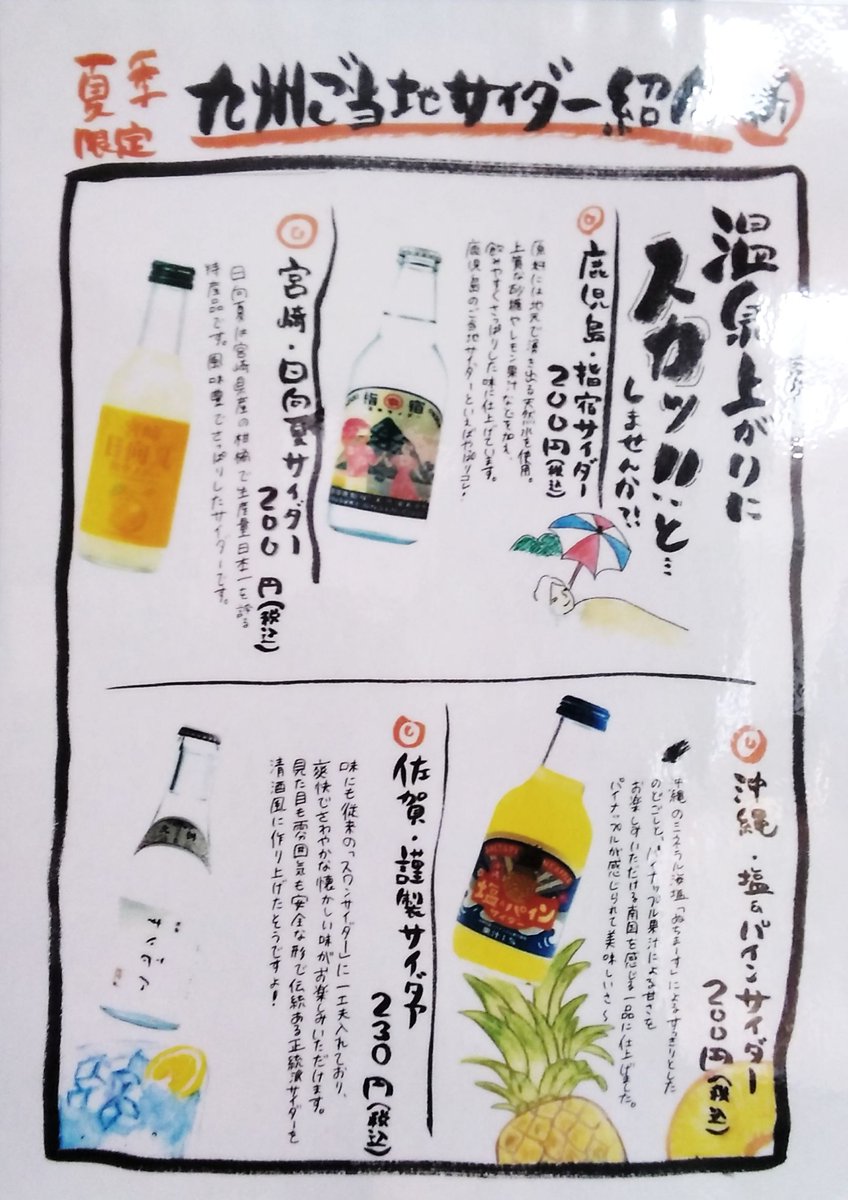 夏季
限定
九州ご当地サイダー紹介
温泉上がりに
スカッと…
しませんか?!
鹿児島・指宿サイダー
200円(税込)
原料には地元で湧き出る天然水を使用。
上質な砂糖やレモン果汁などを加え、
飲みやすくさっぱりした味に仕上げています。
鹿児島のご当地サイダーといえばやっぱりコレ!
指宿
宮崎・日向夏サイダー
200円(税込)
日向夏は宮崎県産の柑橘で生産量日本一を誇る
特産品です。風味豊でさっぱりしたサイダーです。
宮崎
日向夏
沖縄・塩&パインサイダー
200円(税込)
沖縄のミネラル海塩「ぬちまーす」によるすっきりとした
のどごしと、パイナップル果汁による甘さを
お楽しみいただける南国を感じる一品に仕上げました。
パイナップルが感じられて美味しいさ〜
塩&パイン
果汁1%
佐賀・謹製サイダア
230円(税込)
味にも従来の「スワンサイダー」に一工夫入れており、
爽快でさわやかな懐かしい味がお楽しみいただけます。
見た目も雰囲気も安全な形で伝統ある正統派サイダーを
清酒風に作り上げたそうですよ!